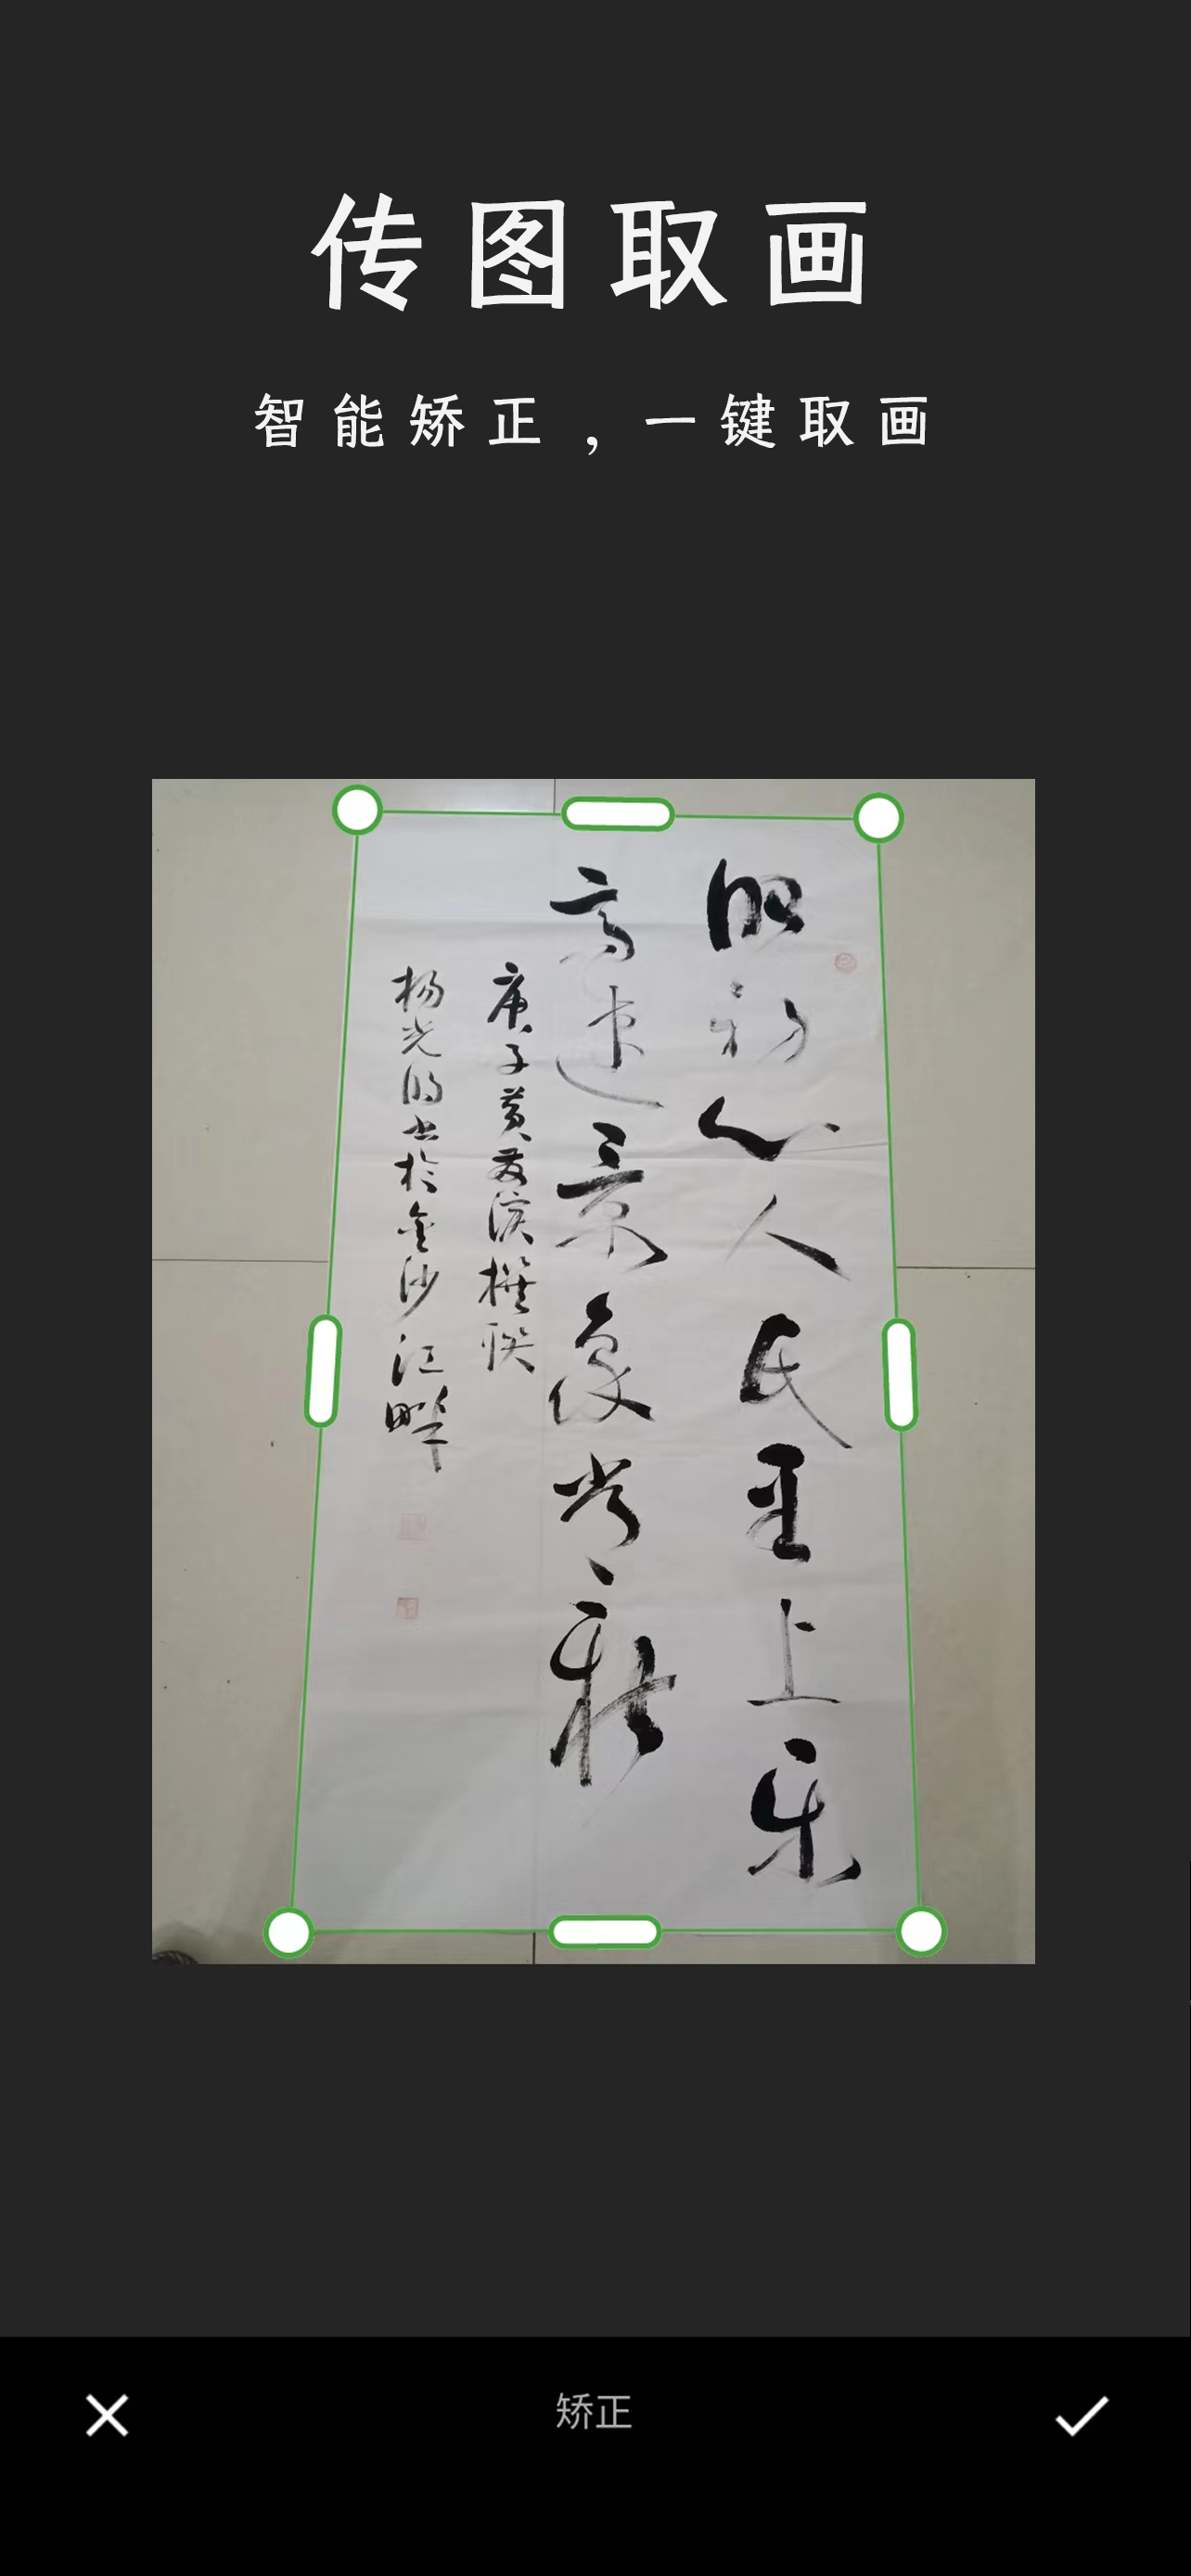 传图取画
智能矫正，一键取画
初心人民至上乐
高速景象尚新
庚子黄友滨撰联
杨光明书于金沙江畔
矫正